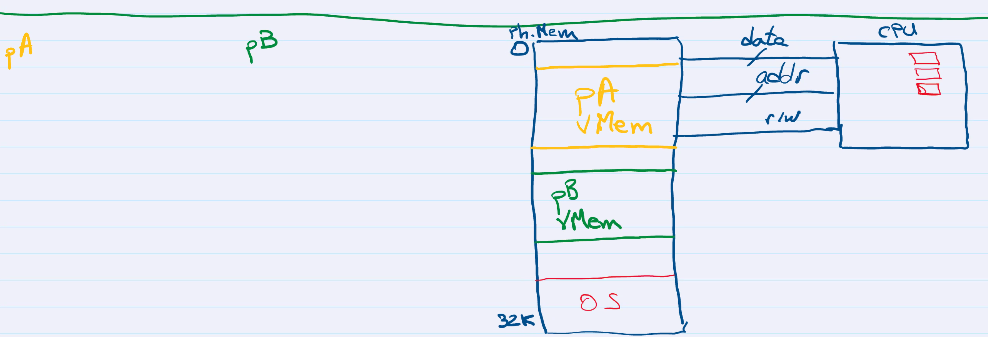 pA
pB
Ph.Mem
0
pA
vMem
pB
vMem
OS
32K
data
addr
r/w
CPU